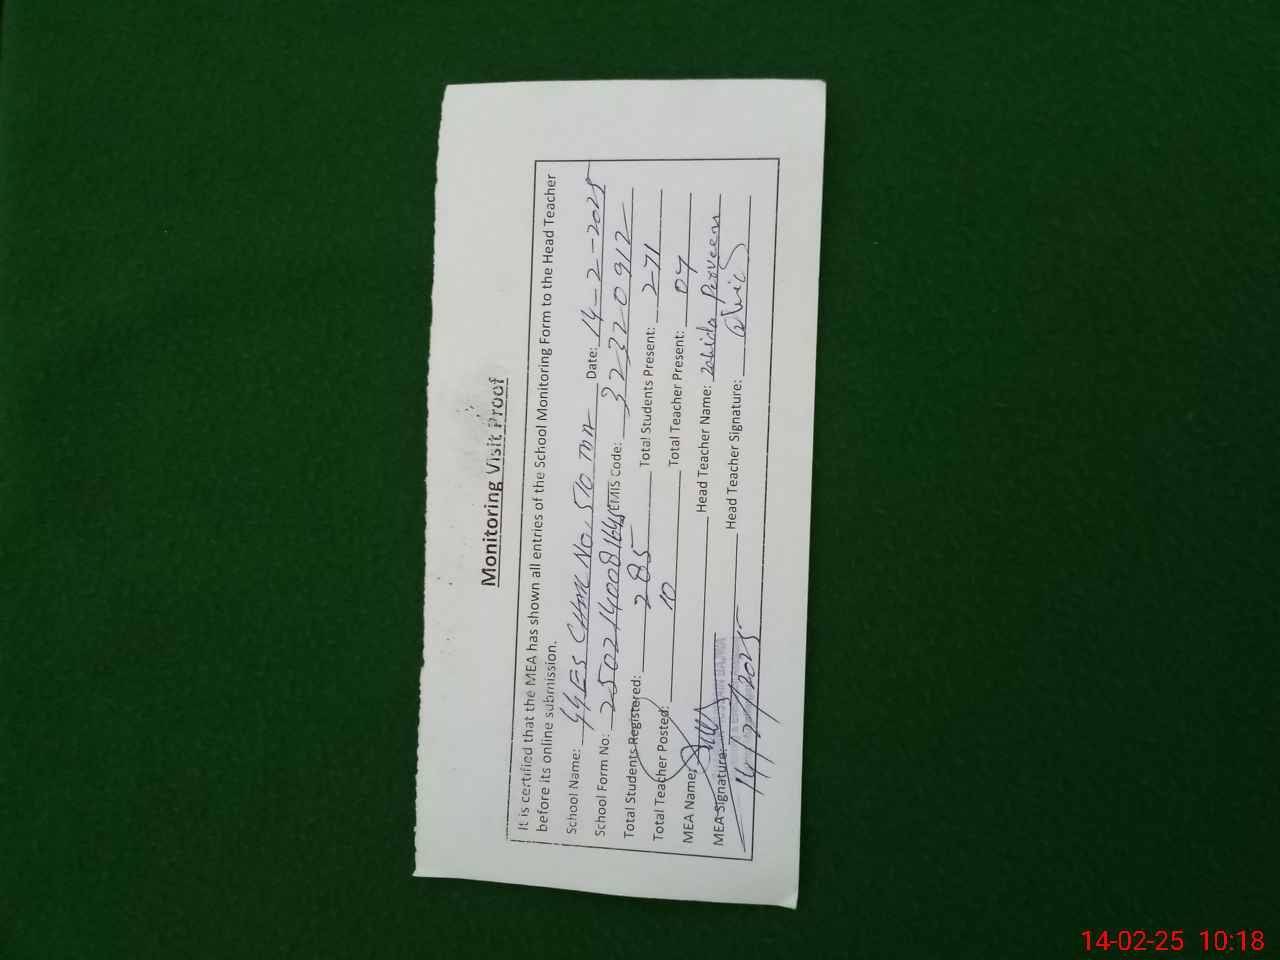 Monitoring Visit Proof
It is certified that the MEA has shown all entries of the School Monitoring Form to the Head Teacher
before its online submission.
School Name: GGES CHAK NO. 510 TDA Date: 14-2-2025
School Form No: EMIS Code: 32320912
Total Students Registered: 285 Total Students Present: 271
Total Teacher Posted: 10 Total Teacher Present: 07
MEA Name: Head Teacher Name: Zahida Perveen
MEA Signature: Head Teacher Signature:
14/2/2025
14-02-25 10:18